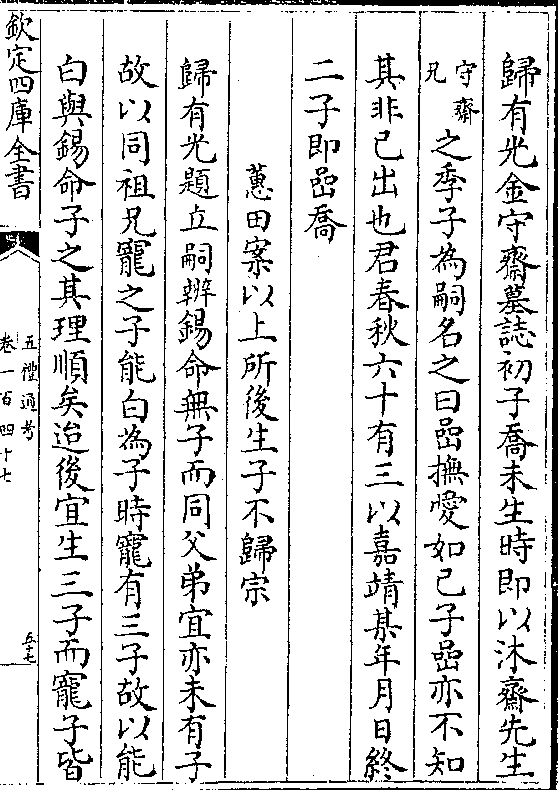 歸有光金守齋墓誌初子喬未生時即以沐齋先生
守齋兄之季子為嗣名之曰嵒撫愛如己子嵒亦不知
其非己出也君春秋六十有三以嘉靖某年月日終
二子即嵒喬
蕙田案以上所後生子不歸宗
歸有光題立嗣辨錫命無子而同父弟宜亦未有子
故以同祖兄寵之子能白為子時寵有三子故以能
白與錫命子之其理順矣迨後宜生三子而寵子皆
欽定四庫全書
五禮通考
卷一百四十七
五七